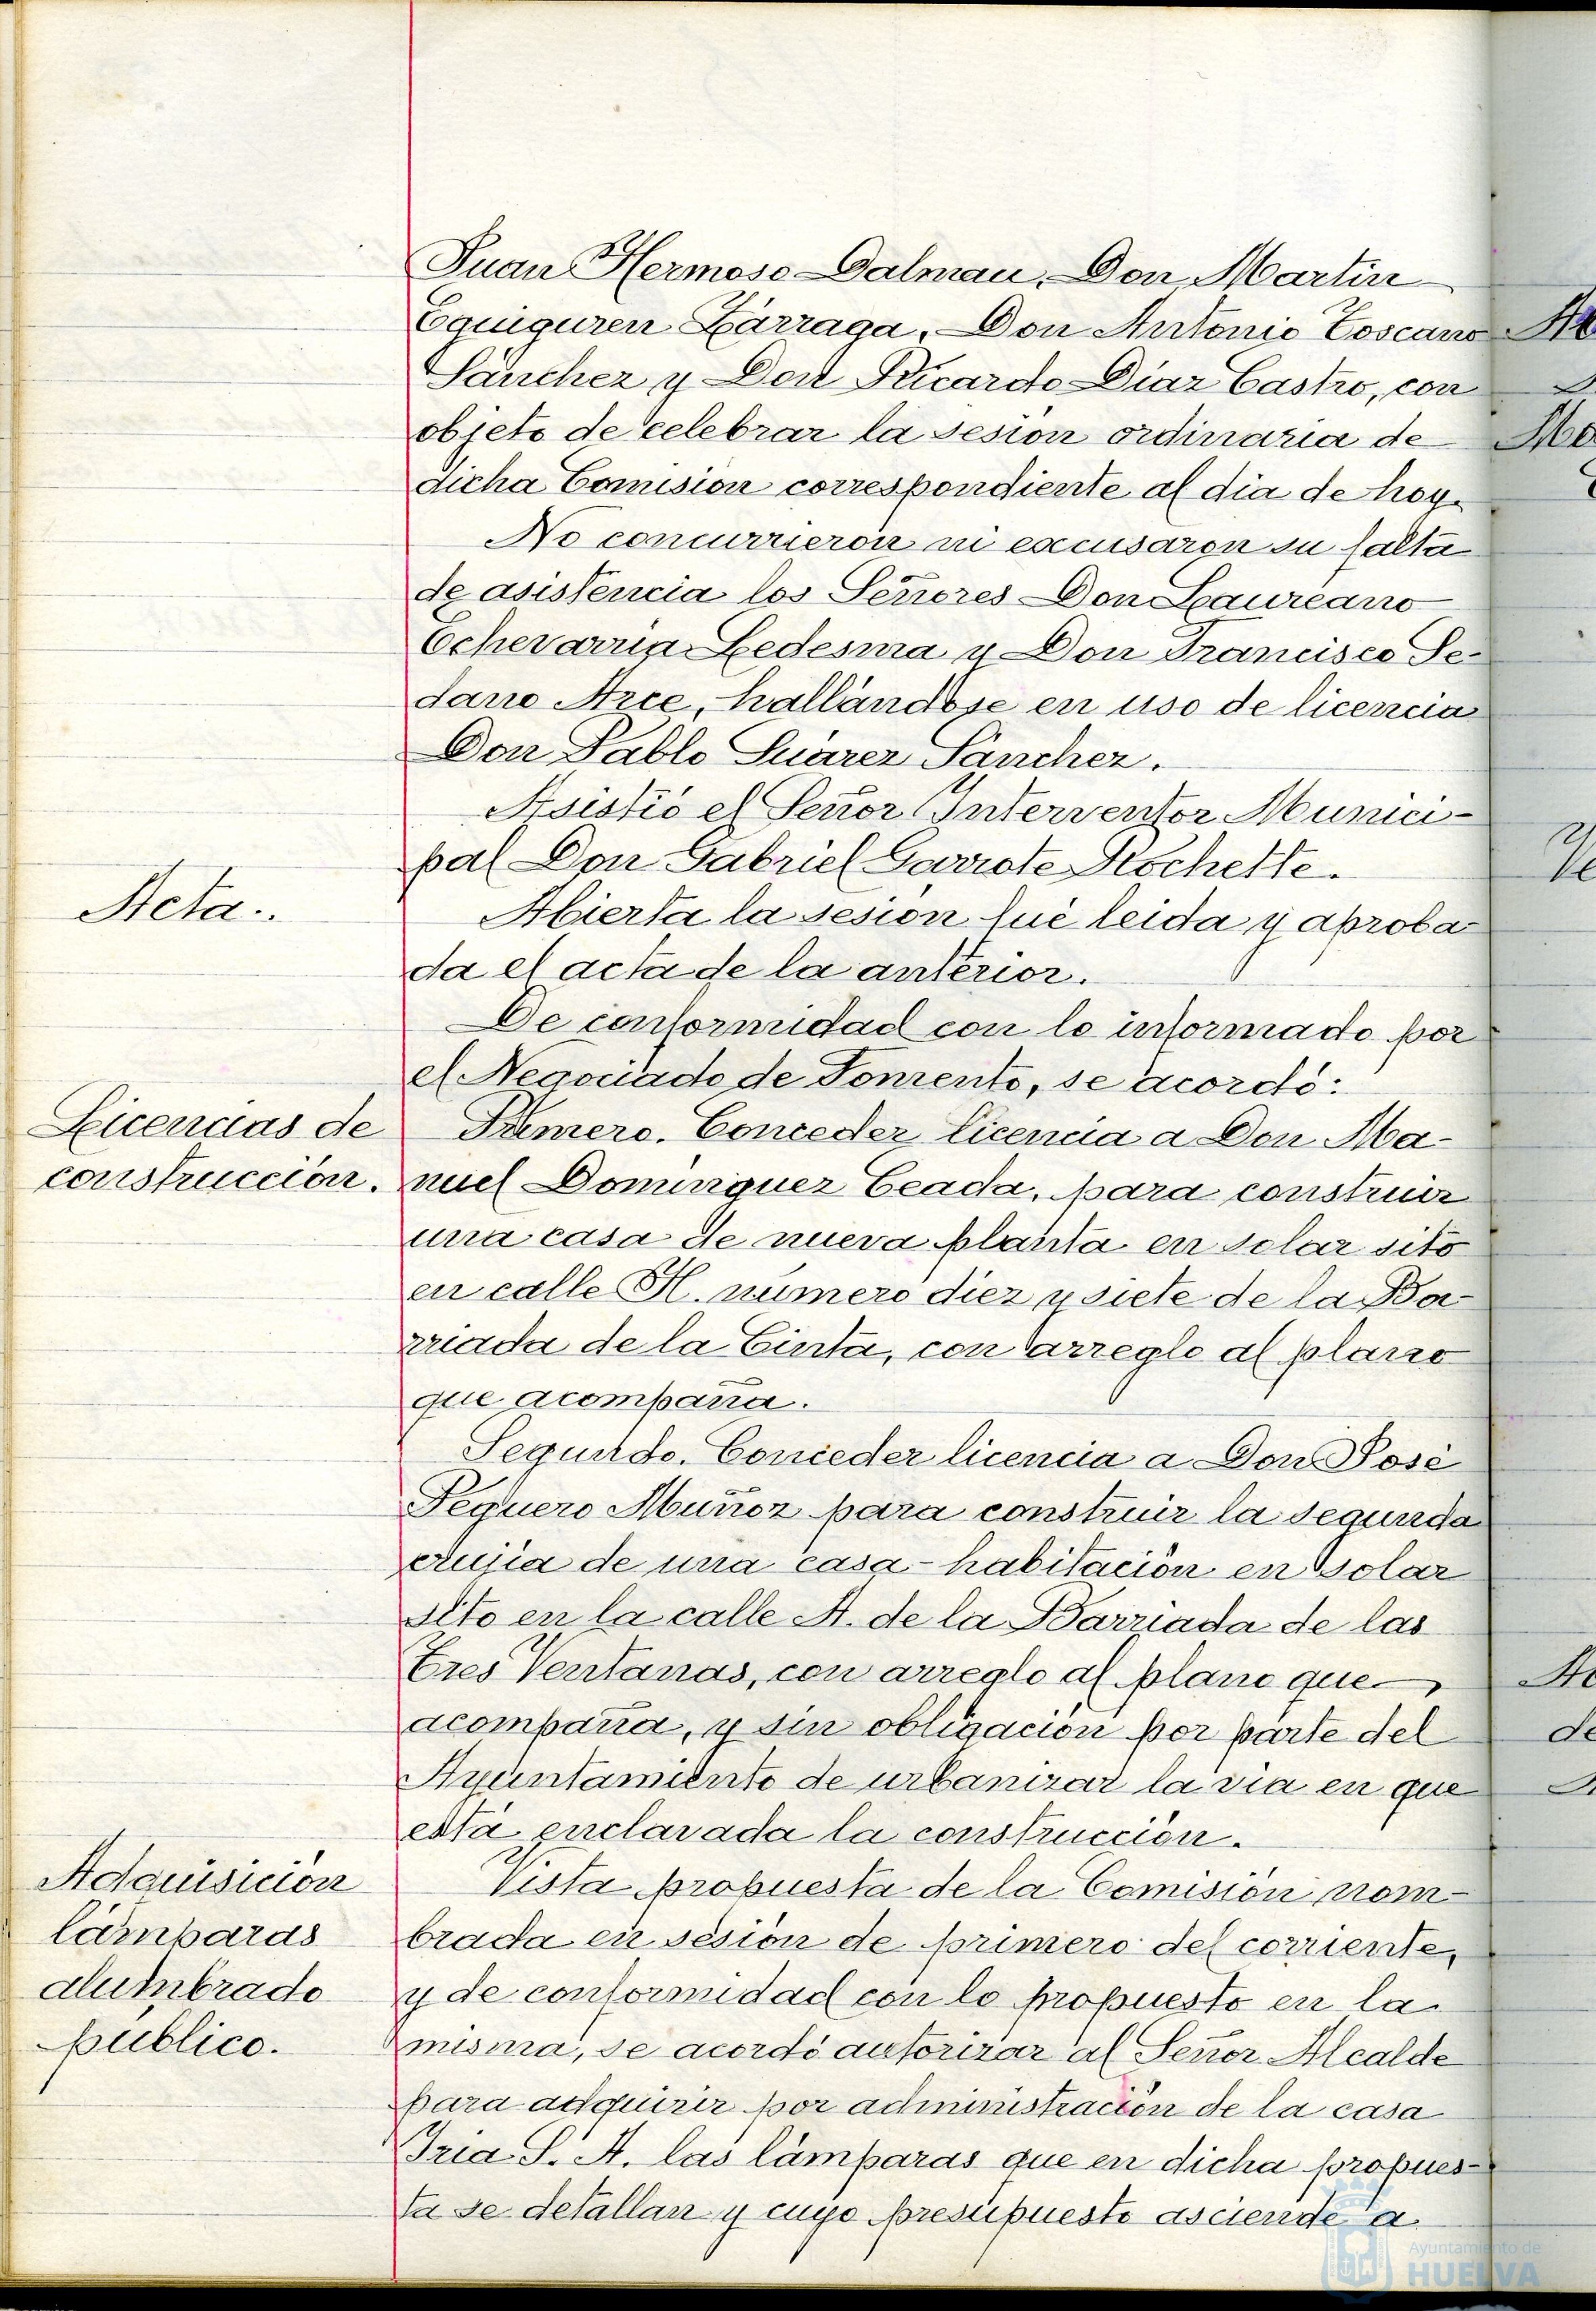 Juan Hermoso Dalmau, Don Martin
Eguiguren Lárraga, Don Antonio Toscano
Sánchez y Don Ricardo Diaz Castro, con
objeto de celebrar la sesión ordinaria de
dicha Comision correspondiente al dia de hoy.
No concurrieron ni excusaron su falta
de asistencia los Señores Don Laureano
Echevarria Ledesma y Don Francisco Se-
dano Arce, hallándose en uso de licencia
Don Pablo Suárez Sánchez.
Asistió el Señor Interventor Munici-
pal Don Gabriel Garrote Rochette.
Acta.
Abierta la sesión fué leida y aproba-
da el acta de la anterior.
De conformidad con lo informado por
el Negociado de Fomento, se acordó:
Licencias de
construcción.
Primero. Conceder licencia a Don Ma-
nuel Dominguez Ceada, para construir
una casa de nueva planta en solar sito
en calle H. número diez y siete de la Ba-
rriada de la Cinta, con arreglo al plano
que acompaña.
Segundo. Conceder licencia a Don José
Pequero Muñoz para construir la segunda
crujia de una casa-habitación en solar
sito en la calle A. de la Barriada de las
Tres Ventanas, con arreglo al plano que
acompaña, y sin obligación por parte del
Ayuntamiento de urbanizar la via en que
está enclavada la construcción.
Adquisición
lámparas
alumbrado
público.
Vista propuesta de la Comisión nom-
brada en sesión de primero del corriente,
y de conformidad con lo propuesto en la
misma, se acordó autorizar al Señor Alcalde
para adquirir por administración de la casa
Iria S. A. las lámparas que en dicha propues-
ta se detallan y cuyo presupuesto asciende a
Ayuntamiento de
HUELVA